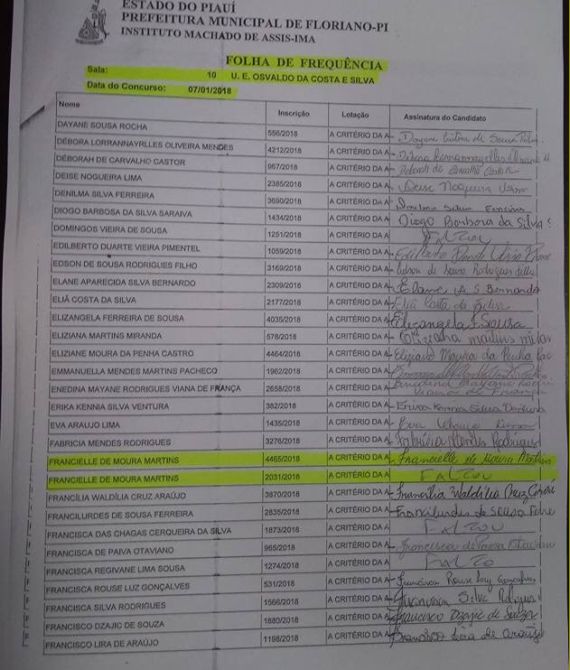 ESTADO DO PIAUÍ
PREFEITURA MUNICIPAL DE FLORIANO-PI
INSTITUTO MACHADO DE ASSIS-IMA
FOLHA DE FREQUÊNCIA
Sala: 10 U. E. OSVALDO DA COSTA E SILVA
Data do Concurso: 07/01/2018
Nome Inscrição Lotação Assinatura do Candidato
DAYANE SOUSA ROCHA 556/2018 A CRITÉRIO DA A
DÉBORA LORRANNAYRLLES OLIVEIRA MENDES 4212/2018 A CRITÉRIO DA A
DÉBORAH DE CARVALHO CASTOR 967/2018 A CRITÉRIO DA A
DEISE NOGUEIRA LIMA 2385/2018 A CRITÉRIO DA A Deise Nogueira
DENILMA SILVA FERREIRA 3690/2018 A CRITÉRIO DA A
DIOGO BARBOSA DA SILVA SARAIVA 1434/2018 A CRITÉRIO DA A Diogo Barbosa da Silva S
DOMINGOS VIEIRA DE SOUSA 1251/2018 A CRITÉRIO DA A FALTOU
EDILBERTO DUARTE VIEIRA PIMENTEL 1059/2018 A CRITÉRIO DA A
EDSON DE SOUSA RODRIGUES FILHO 3169/2018 A CRITÉRIO DA A
ELANE APARECIDA SILVA BERNARDO 2309/2018 A CRITÉRIO DA A Elane A. S. Bernardo
ELIÃ COSTA DA SILVA 2177/2018 A CRITÉRIO DA A Eliã Costa da Silva
ELIZANGELA FERREIRA DE SOUSA 4035/2018 A CRITÉRIO DA A Elizangela F Sousa
ELIZIANA MARTINS MIRANDA 578/2018 A CRITÉRIO DA A
ELIZIANE MOURA DA PENHA CASTRO 4464/2018 A CRITÉRIO DA A Eliziane Moura da Penha
EMMANUELLA MENDES MARTINS PACHECO 1962/2018 A CRITÉRIO DA A
ENEDINA MAYANE RODRIGUES VIANA DE FRANÇA 2658/2018 A CRITÉRIO DA A
ERIKA KENNIA SILVA VENTURA 382/2018 A CRITÉRIO DA A
EVA ARAUJO LIMA 1435/2018 A CRITÉRIO DA A
FABRICIA MENDES RODRIGUES 3276/2018 A CRITÉRIO DA A Fabrícia Mendes Rodrigues
FRANCIELLE DE MOURA MARTINS 4465/2018 A CRITÉRIO DA A Francielle de Moura Martins
FRANCIELLE DE MOURA MARTINS 2031/2018 A CRITÉRIO DA A FALTOU
FRANCÍLIA WALDÍLIA CRUZ ARAÚJO 3870/2018 A CRITÉRIO DA A Francília Waldília Cruz
FRANCILURDES DE SOUSA FERREIRA 2835/2018 A CRITÉRIO DA A Francilurdes de Sousa
FRANCISCA DAS CHAGAS CERQUEIRA DA SILVA 1873/2018 A CRITÉRIO DA A FALTOU
FRANCISCA DE PAIVA OTAVIANO 965/2018 A CRITÉRIO DA A Francisca de Paiva
FRANCISCA REGIVANE LIMA SOUSA 1274/2018 A CRITÉRIO DA A
FRANCISCA ROUSE LUZ GONÇALVES 531/2018 A CRITÉRIO DA A Francisca Rouse Luz Gonçalves
FRANCISCA SILVA RODRIGUES 1566/2018 A CRITÉRIO DA A Francisca Silva Rodrigues
FRANCISCO DZAJIC DE SOUZA 1880/2018 A CRITÉRIO DA A Francisco Dzajic de Souza
FRANCISCO LIRA DE ARAÚJO 1198/2018 A CRITÉRIO DA A Francisco Lira de Araújo